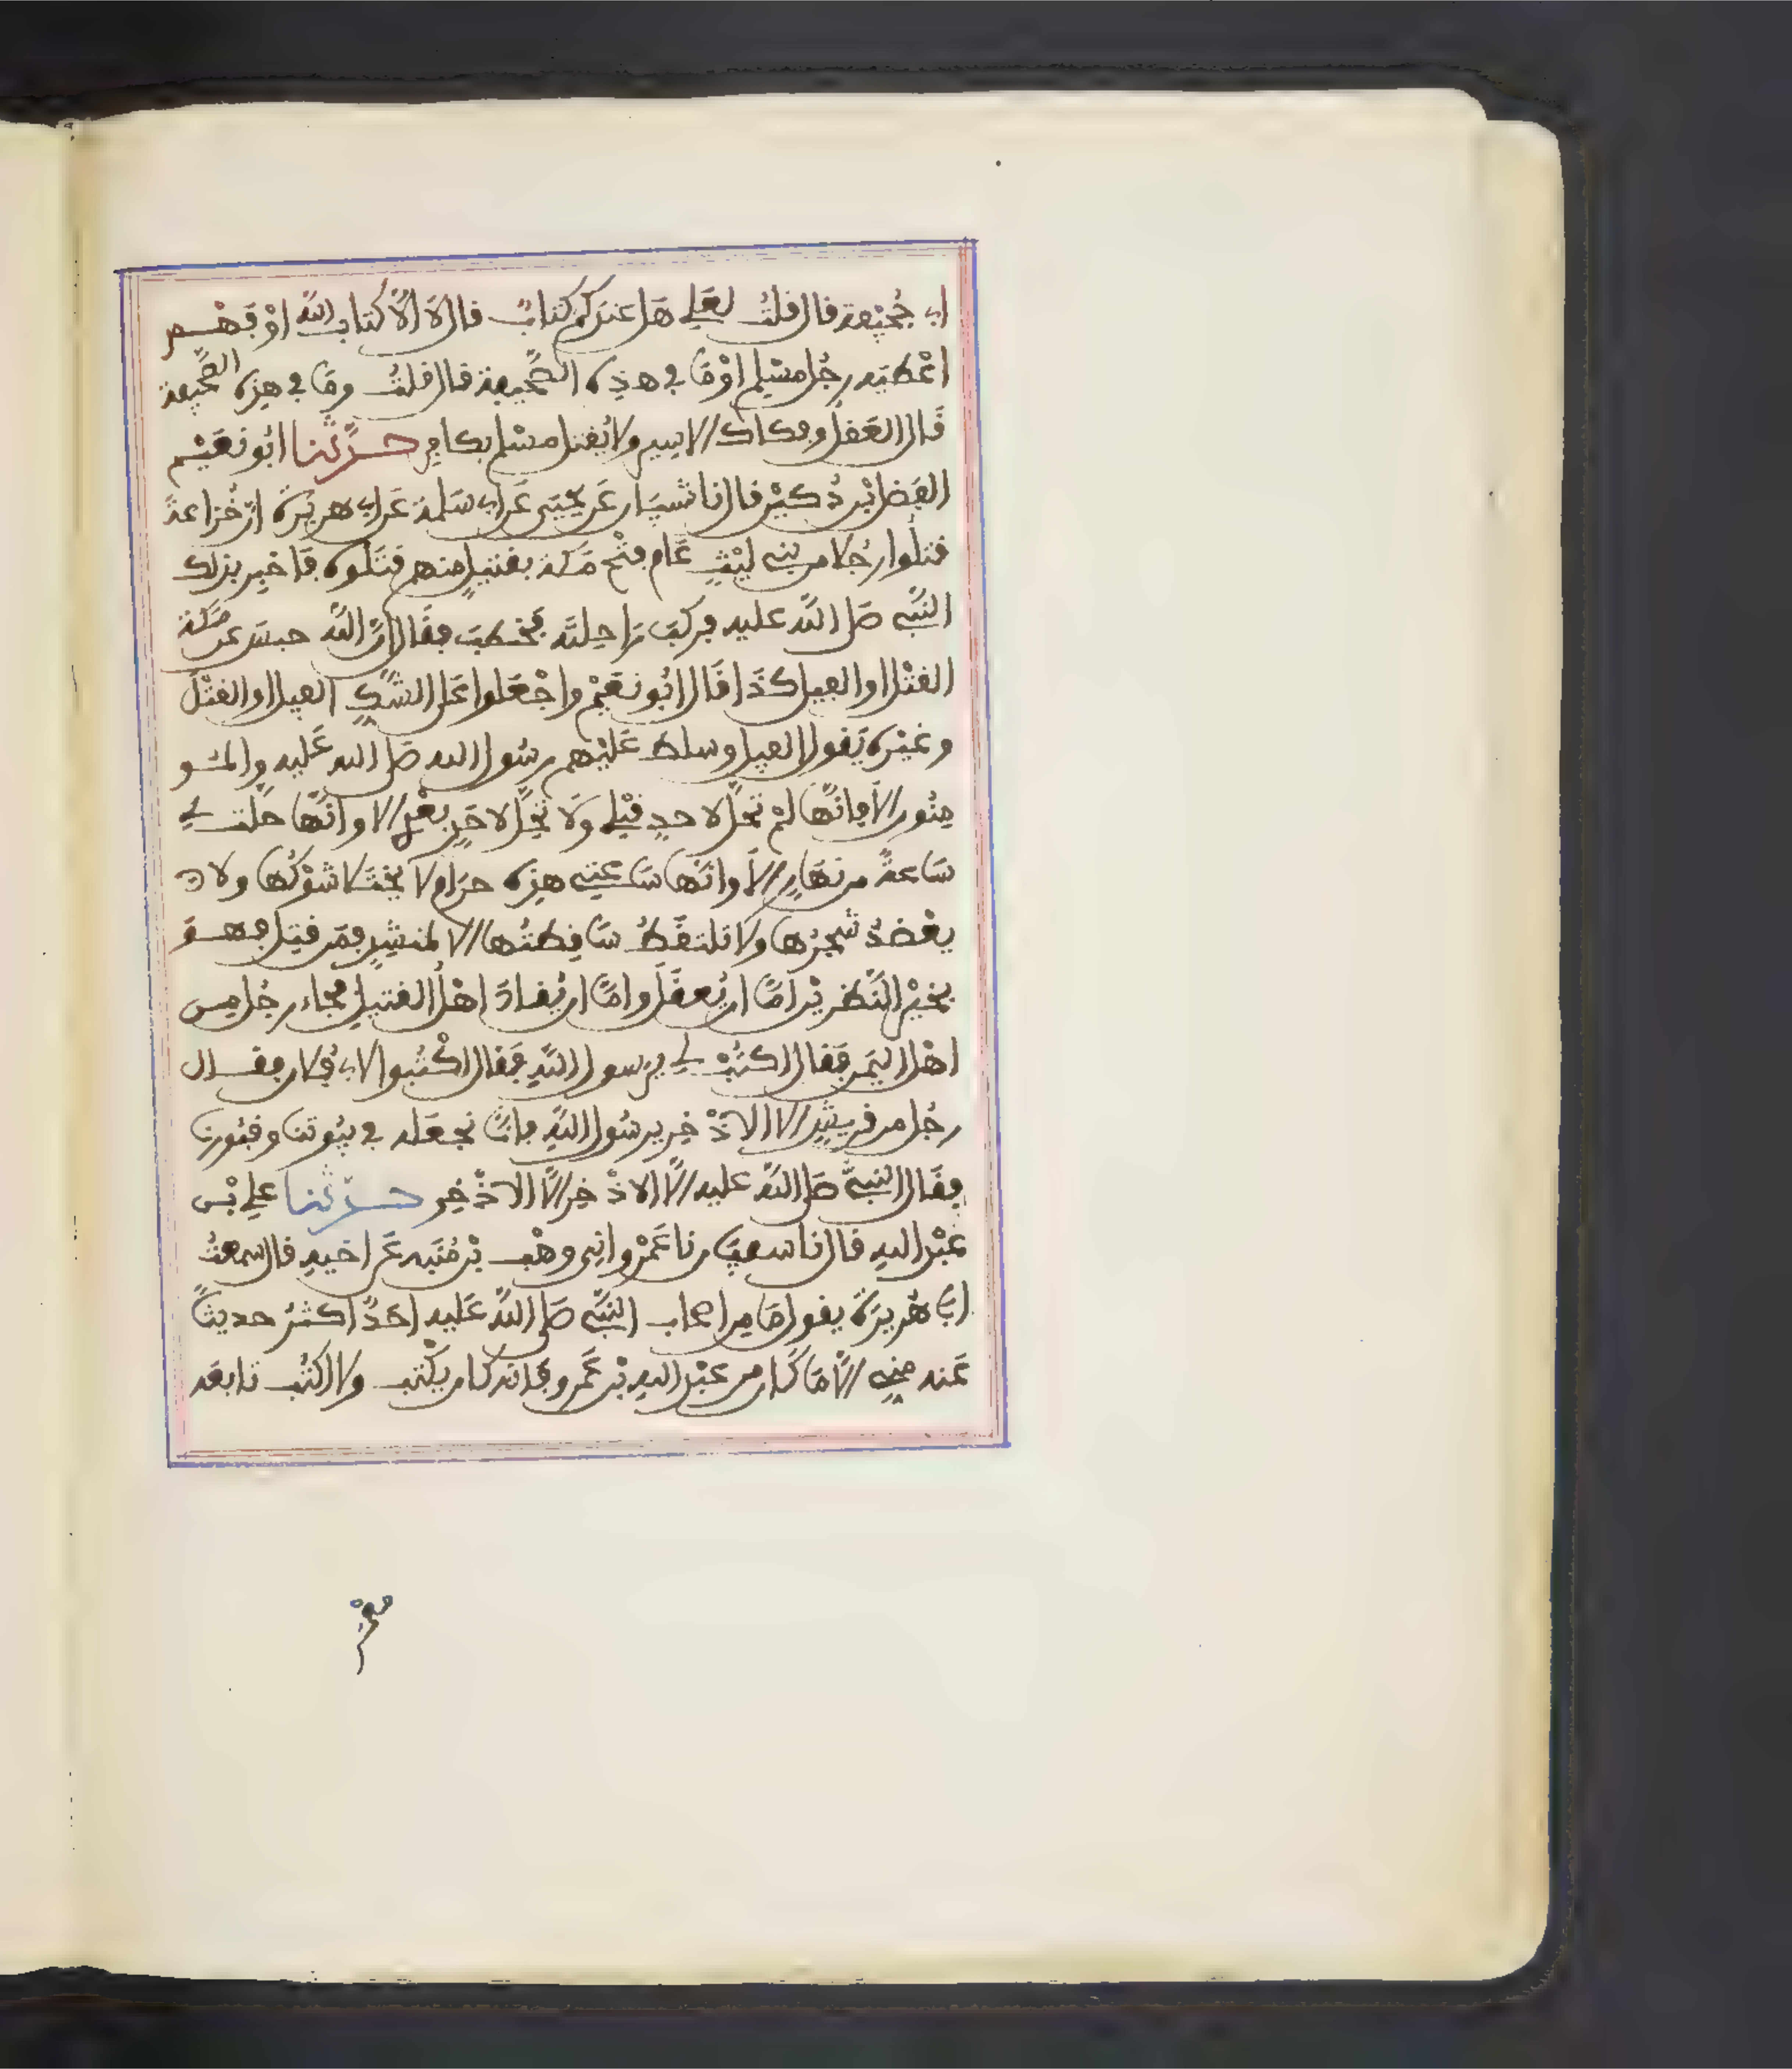 ابي جُحَيْفة قال قلتُ لعَلي هَل عندَكم كتابٌ قال لا الّا كتاب اللّه اوْ فَهْم
اعْطيَه رجُل مسْلِم اوْ مَا في هذِه الصَّحيفة قال قلتُ ومَا في هذِه الصَّحيفة
قَال العَقل وفكاك الاسير ولا يُقتل مسْلم بكافِرٍ حدَّثنا ابُو نعَيْم
الفَضل ابْن دُكيْن قال نا شيبَان عَن يحيَى عَن ابي سَلمة عَن ابي هريْرَة انّ خُزاعةَ
قتلُوا رجُلا من بني ليْثٍ عَام فتْح مَكة بقتيلٍ منهم قتَلوه فَاخبِر بذلك
النَّبي صَلى اللّه عليه فركبَ رَاحلتَه فخطبَ فقَال انَّ اللّه حبسَ عن مَكة
القتْل او الفيل كذَا قَال ابُو نعَيْم واجْعَلوا عَلى الشكِّ الفيل او القتْل
وغيْرَه يَقول الفيل وسلط عَليْهم رسُول الله صَلى الله عَليه والمـو
منُون الاَ فانّهَا لمْ تحلَّ لاحدٍ قبْلي وَلا تحِلّ لاحَدٍ بعْدِي الا وانّهَا حلّت لي
سَاعةً من نهَارٍ الاَ وانهَا سَاعتي هذِه حرَام لا يخْتلا شوْكُها ولا
يعْضدُ شجرُها ولا تلتقَطُ سَاقِطتُها الا لمنشِدٍ فمَن قتِل فهـوَ
بخيْر النَّظريْن امّا ان يُعقَلَ وامّا ان يُقادَ اهْلُ القتيلِ فجَاء رجُل من
اهْل اليَمن فقَال اكتُبْ لي يرَسول اللّهِ فقَال اكْتُبوا لابي فُلان فقـال
رجُل من قريشٍ الا الاذْخِر يرسُول اللّهِ فانّا نجعَله في بيُوتنا وقبُورنا
فقَال النبيّ صَلى اللّه عليه الّا الاذْخِر الّا الاذْخِر حدَّثنا علي بْن
عبْد اللهِ قال نا سفيَان نا عَمْرو اني وهْب بْن مُنَبه عَن اخيهِ قال سمعتُ
ابَا هُريرَة يقول مَا مِن اصحاب النبيّ صَلى اللّه عَليه احَدٌ اكثرُ حديثًا
عَنه منِي الّا مَا كَان من عبْد اللهِ بْن عَمرو فَانه كان يكْتب ولا اكتُب تابعَه
معْمرٌ